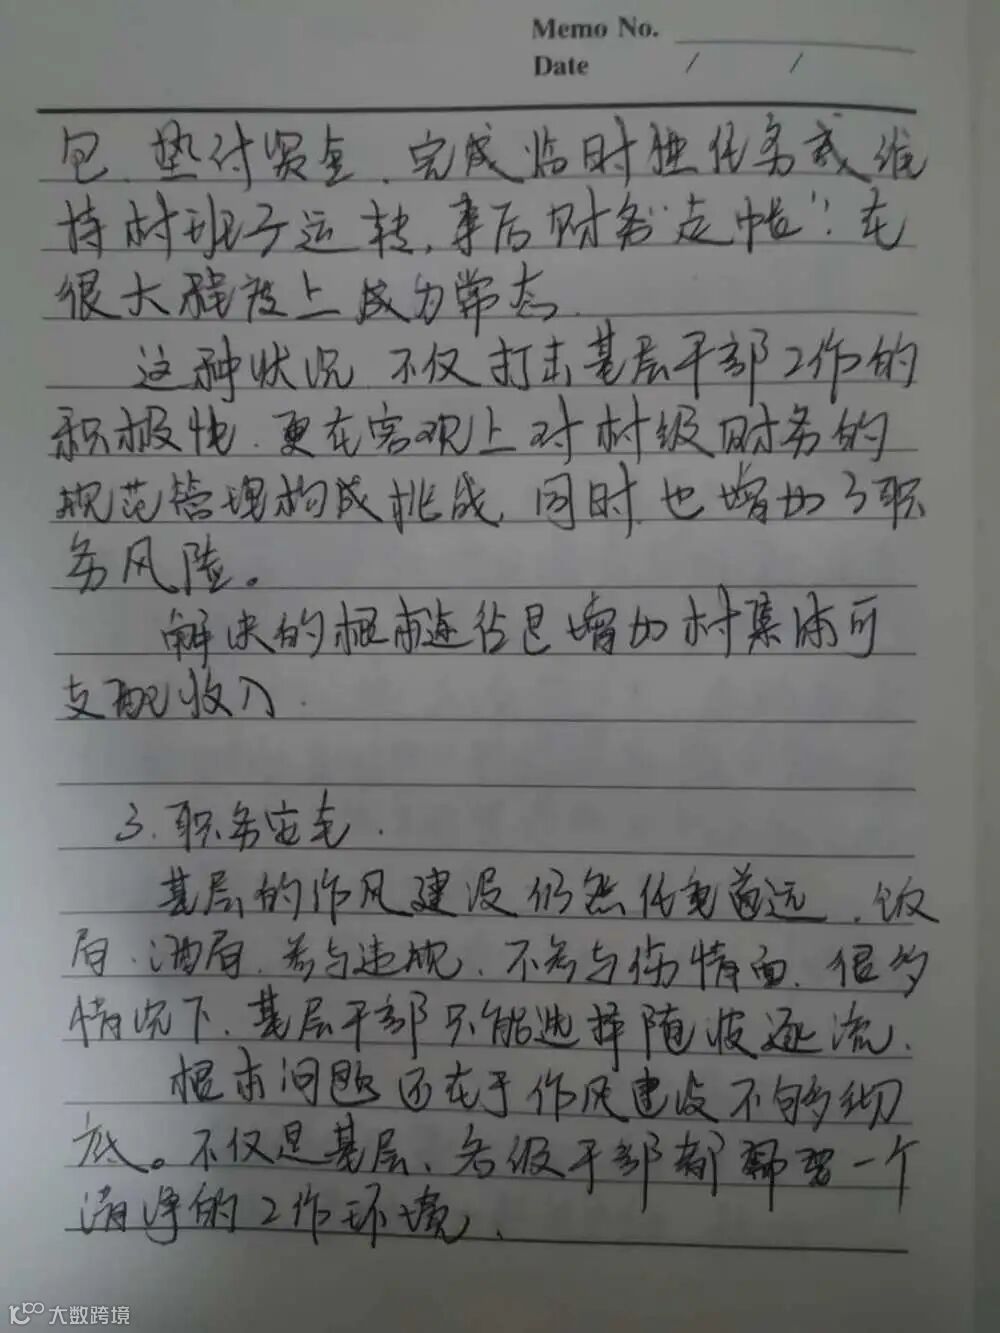 Memo No.
Date / /
包、垫付资金、完成临时性任务或维
持村班子运转,事后财务“走帐”,在
很大程度上成为常态.
这种状况,不仅打击基层干部工作的
积极性,更在客观上对村级财务的
规范管理构成挑战,同时,也增加了职
务风险。
解决的根本途径是增加村集体可
支配收入.
3.职务安全.
基层的作风建设仍然任重道远,饭
局、酒局,参与违规,不参与伤情面,很多
情况下,基层干部只能选择随波逐流.
根本问题还在于作风建设不够彻
底。不仅是基层,各级干部都需要一个
清净的工作环境.
大数跨境